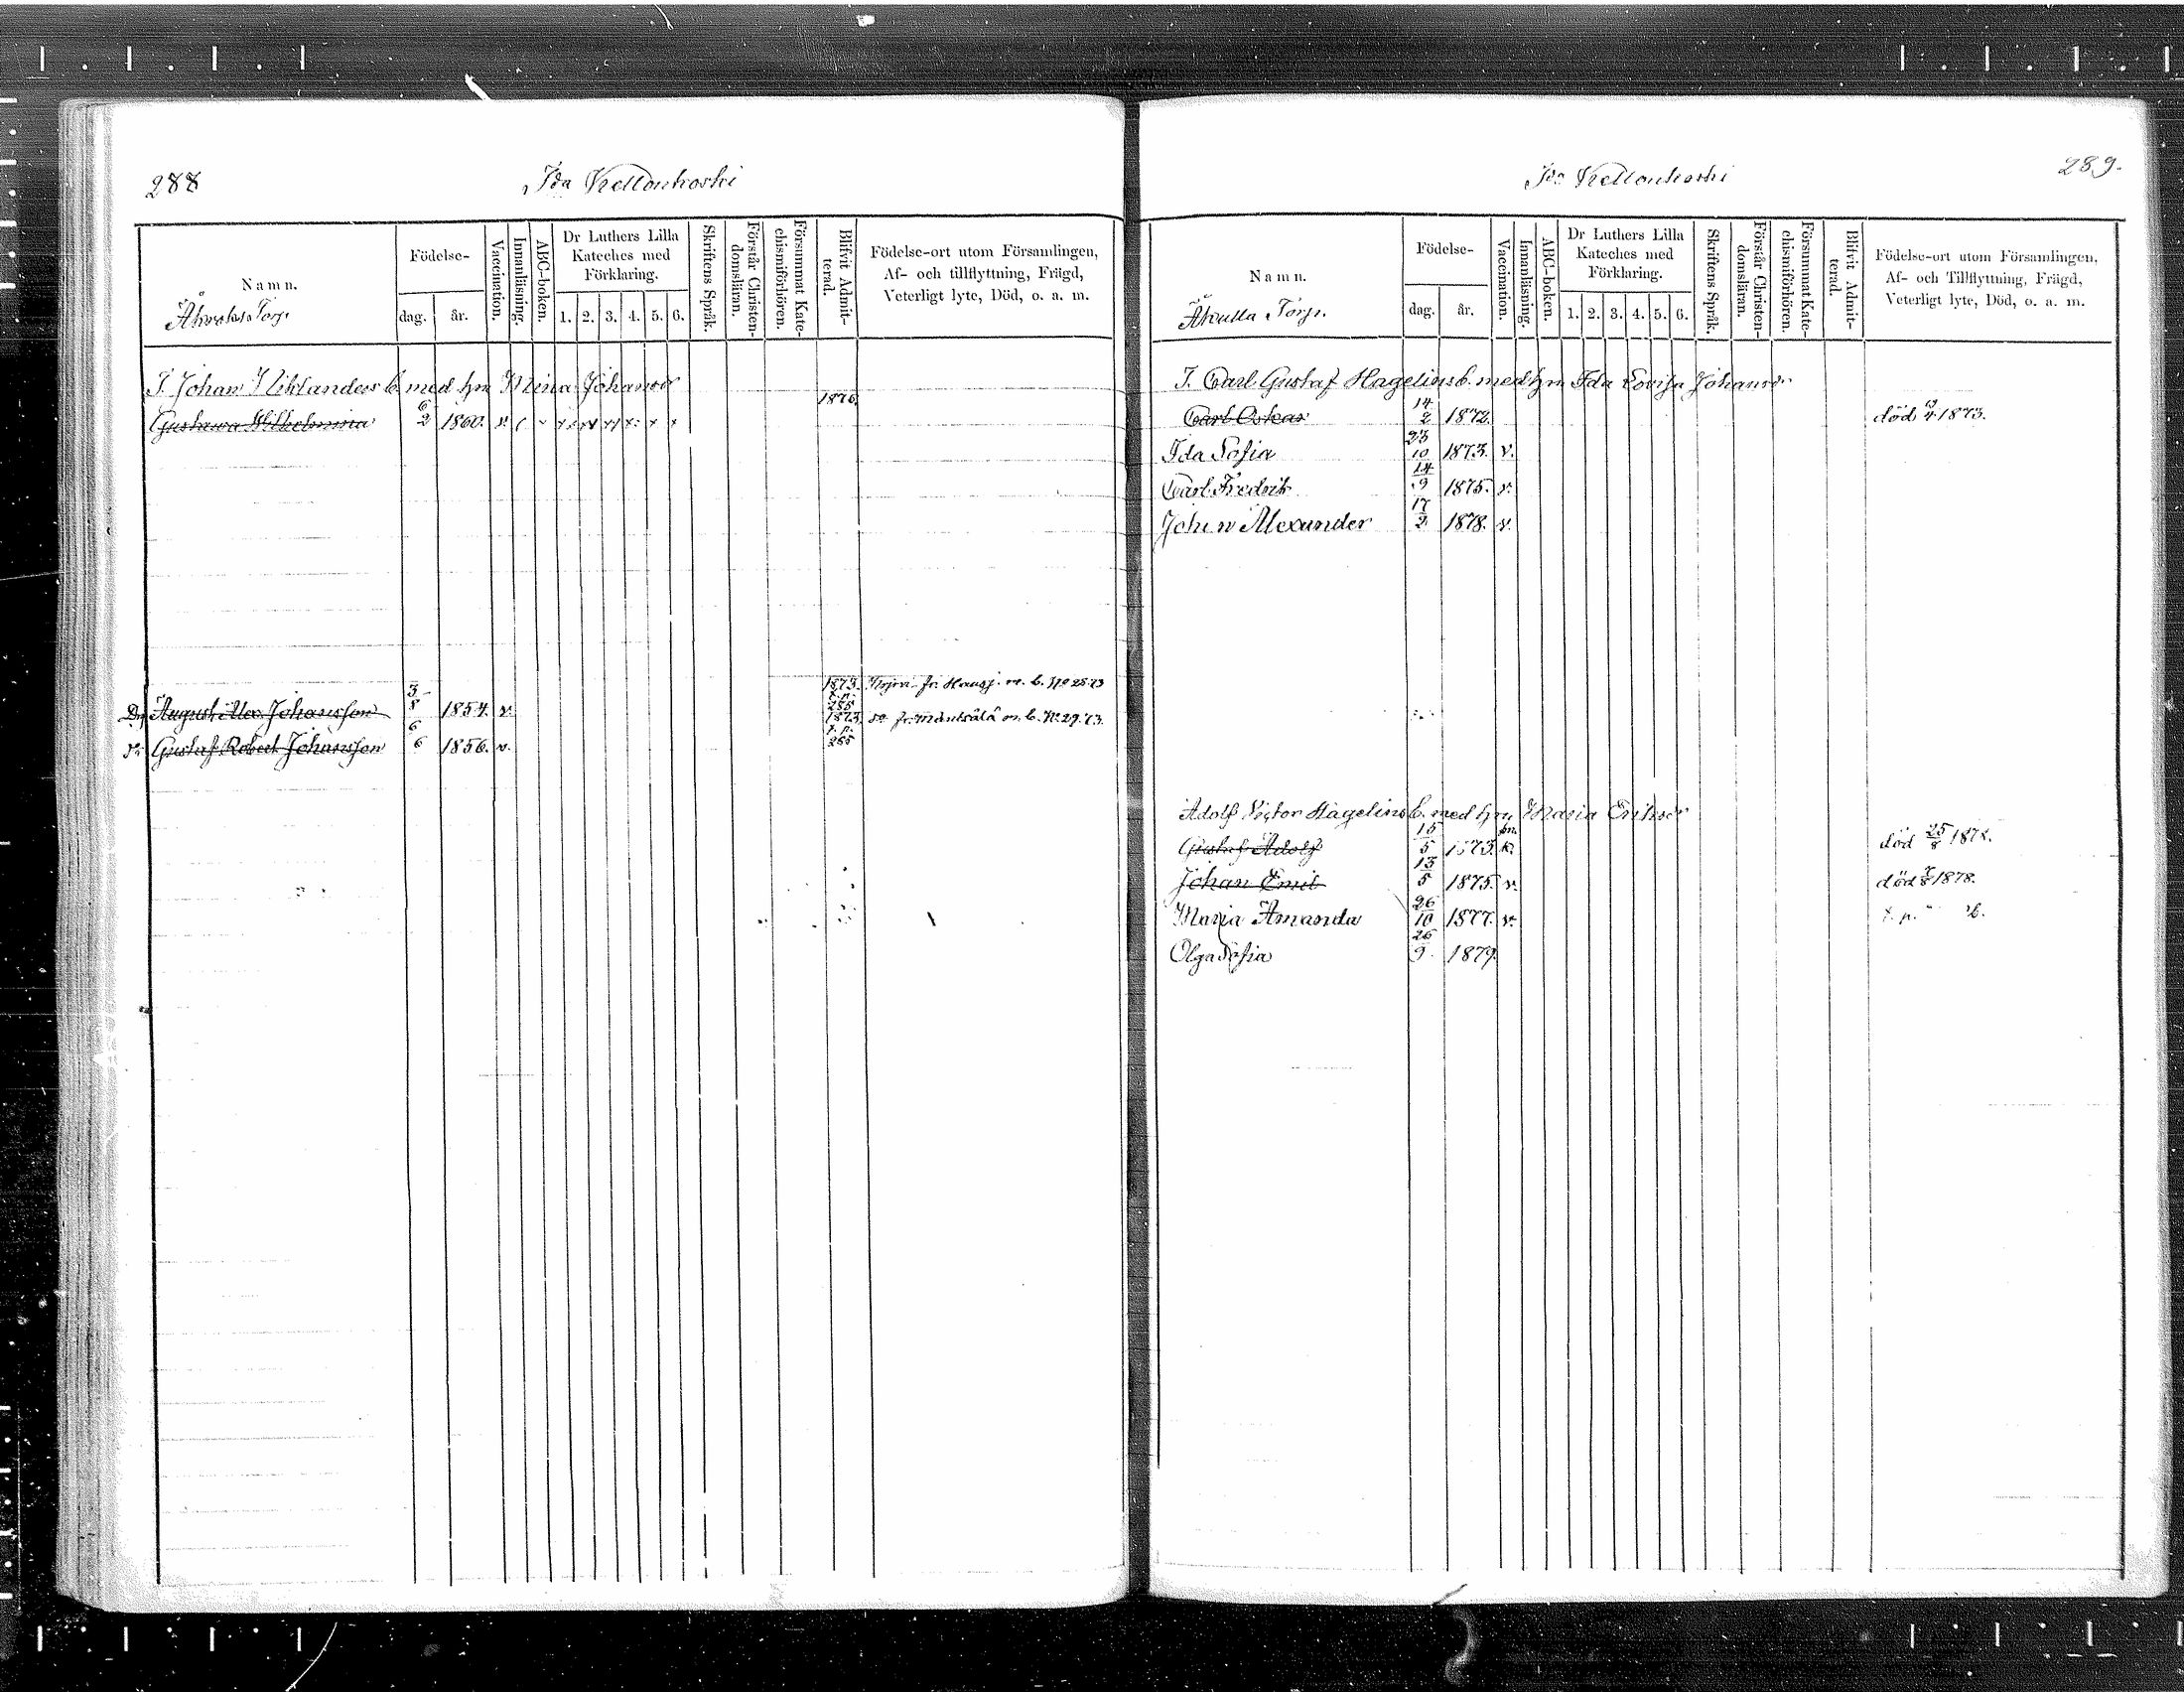 288
Ida Kellonkoski
Namn.
Torp.
Födelse-
dag.
år.
Vaccination.
Innanläsning.
ABC-boken.
Dr Luthers Lilla
Kateches med
Förklaring.
1. 2. 3. 4. 5. 6.
Skriftens Språk.
Förstår Christen-
domsläran.
Försummat Kate-
chismiförhören.
Blifvit Admit-
terad.
Födelse-ort utom Församlingen,
Af- och tillflyttning, Frägd,
Veterligt lyte, Död, o. a. m.
T. Johan Wiklanders b. med hru Mina Johansdr
Gustawa Wilhelmina 6/2 1860. v. 1876
August Alex. Johansson 3/8 1854. v. 1873. t.p. 285 fr. Hausj. m. b. No 28.73
Gustaf Robert Johansson 6/6 1856. v. 1873 t.p. 285 fr. Mäntsälä m. b. No 29.73.
289.
Ida Kellonkoski
Namn.
Åkulla Torp.
Födelse-
dag.
år.
Vaccination.
Innanläsning.
ABC-boken.
Dr Luthers Lilla
Kateches med
Förklaring.
1. 2. 3. 4. 5. 6.
Skriftens Språk.
Förstår Christen-
domsläran.
Försummat Kate-
chismiförhören.
Blifvit Admit-
terad.
Födelse-ort utom Församlingen,
Af- och Tillflyttning, Frägd,
Veterligt lyte, Död, o. a. m.
T. Carl Gustaf Hagelins b. med hru Ida Lovisa Johansdr
Carl Oskar 14/2 1872. död 1873.
Ida Sofia 23/10 1873. v.
Carl Fredrik 14/9 1875. v.
Johan Alexander 17/2 1878. v.
Adolf Victor Hagelins b. med hru Maria Eriksdr
Gustaf Adolf 15/5 1873. död 25/8 1878.
Johan Emil 13/5 1875. v. död 1878.
Maria Amanda 26/10 1877. v. t. p.
Olga Sofia 26/9 1879.